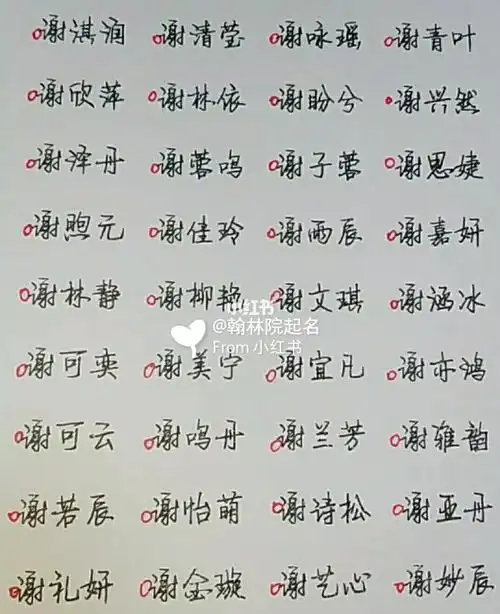 谢淇润 谢清莹 谢咏瑶 谢青叶
谢欣萍 谢林依 谢盼兮 谢兴然
谢泽丹 谢蓉鸣 谢子蓉 谢思婕
谢煦元 谢佳玲 谢雨辰 谢嘉妍
谢林静 谢柳艳 谢文琪 谢涵冰
小红书
@翰林院起名
From 小红书
谢可奕 谢美宁 谢宜凡 谢亦鸿
谢可云 谢鸣丹 谢兰芳 谢雅韵
谢若辰 谢怡萌 谢诗松 谢亚丹
谢礼妍 谢金璇 谢艺心 谢妙辰